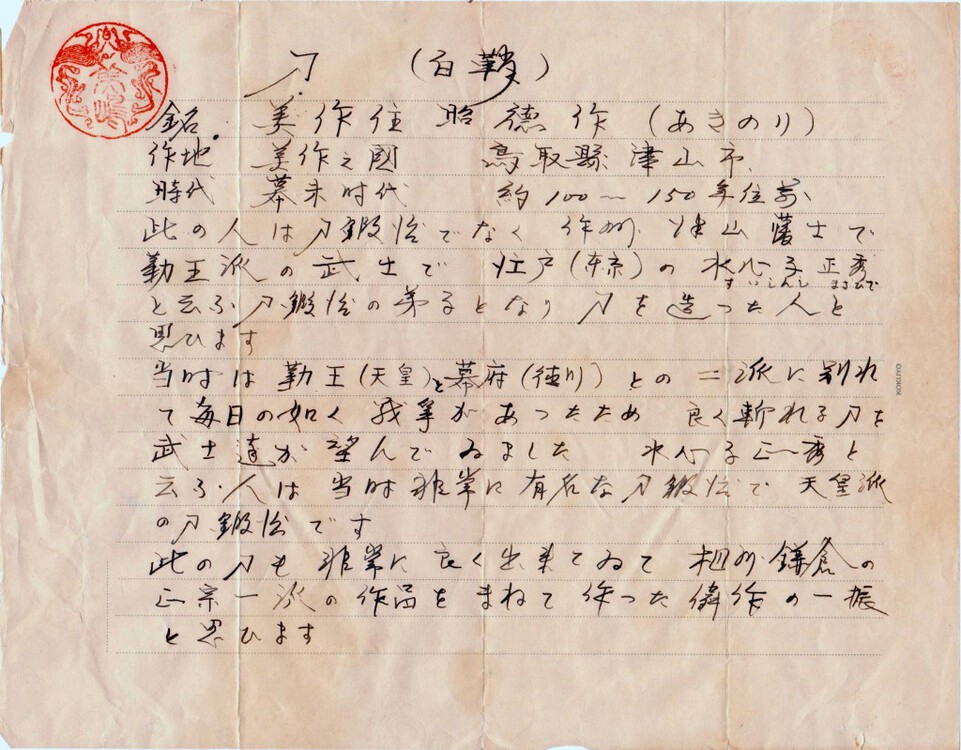 刀 (白鞘)
銘 美作住照徳作 (あきのり)
作地 美作之國 鳥取縣津山市
時代 幕末时代 約100〜150年位前
此の人は刀鍛冶でなく 作州 津山藩士で
勤王派の武士で 江戸(東京)の水心子正秀
すいしんし まさひで
と云ふ刀鍛冶の弟子となり 刀を造った人と
思ひます
当时は勤王(天皇)と幕府(徳川)との二派に別れ
て毎日の如く戦争があったため 良く斬れる刀を
武士達が望んでゐました 水心子正秀と
云ふ人は当时非常に有名な刀鍛冶で 天皇派
の刀鍛冶です
此の刀も非常に良く出来てゐて 相州鎌倉の
正宗一派の作品をまねて作った偉作の一振
と思ひます